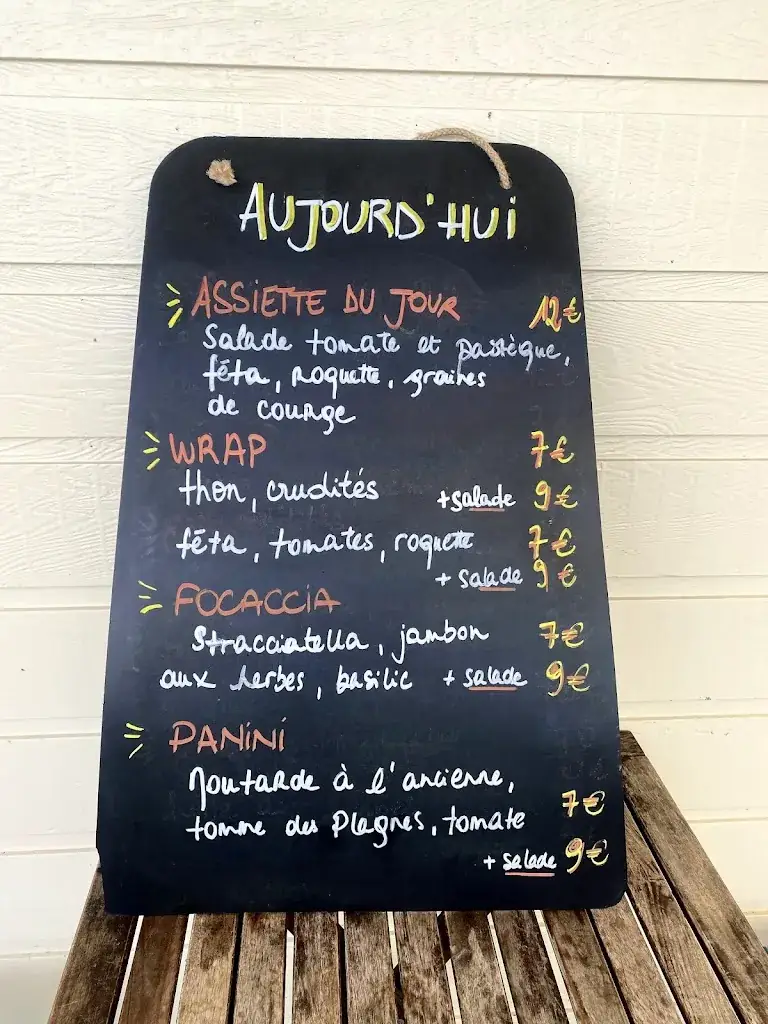 AUJOURD'HUI
ASSIETTE DU JOUR 12€
Salade tomate et pastèque,
féta, roquette, graines
de courge
WRAP 7€
thon, crudités +salade 9€
féta, tomates, roquette 7€
+ salade 9€
FOCACCIA
Stracciatella, jambon 7€
aux herbes, basilic + salade 9€
PANINI
Moutarde à l'ancienne,
tomme des Plagnes, tomate 7€
+ salade 9€